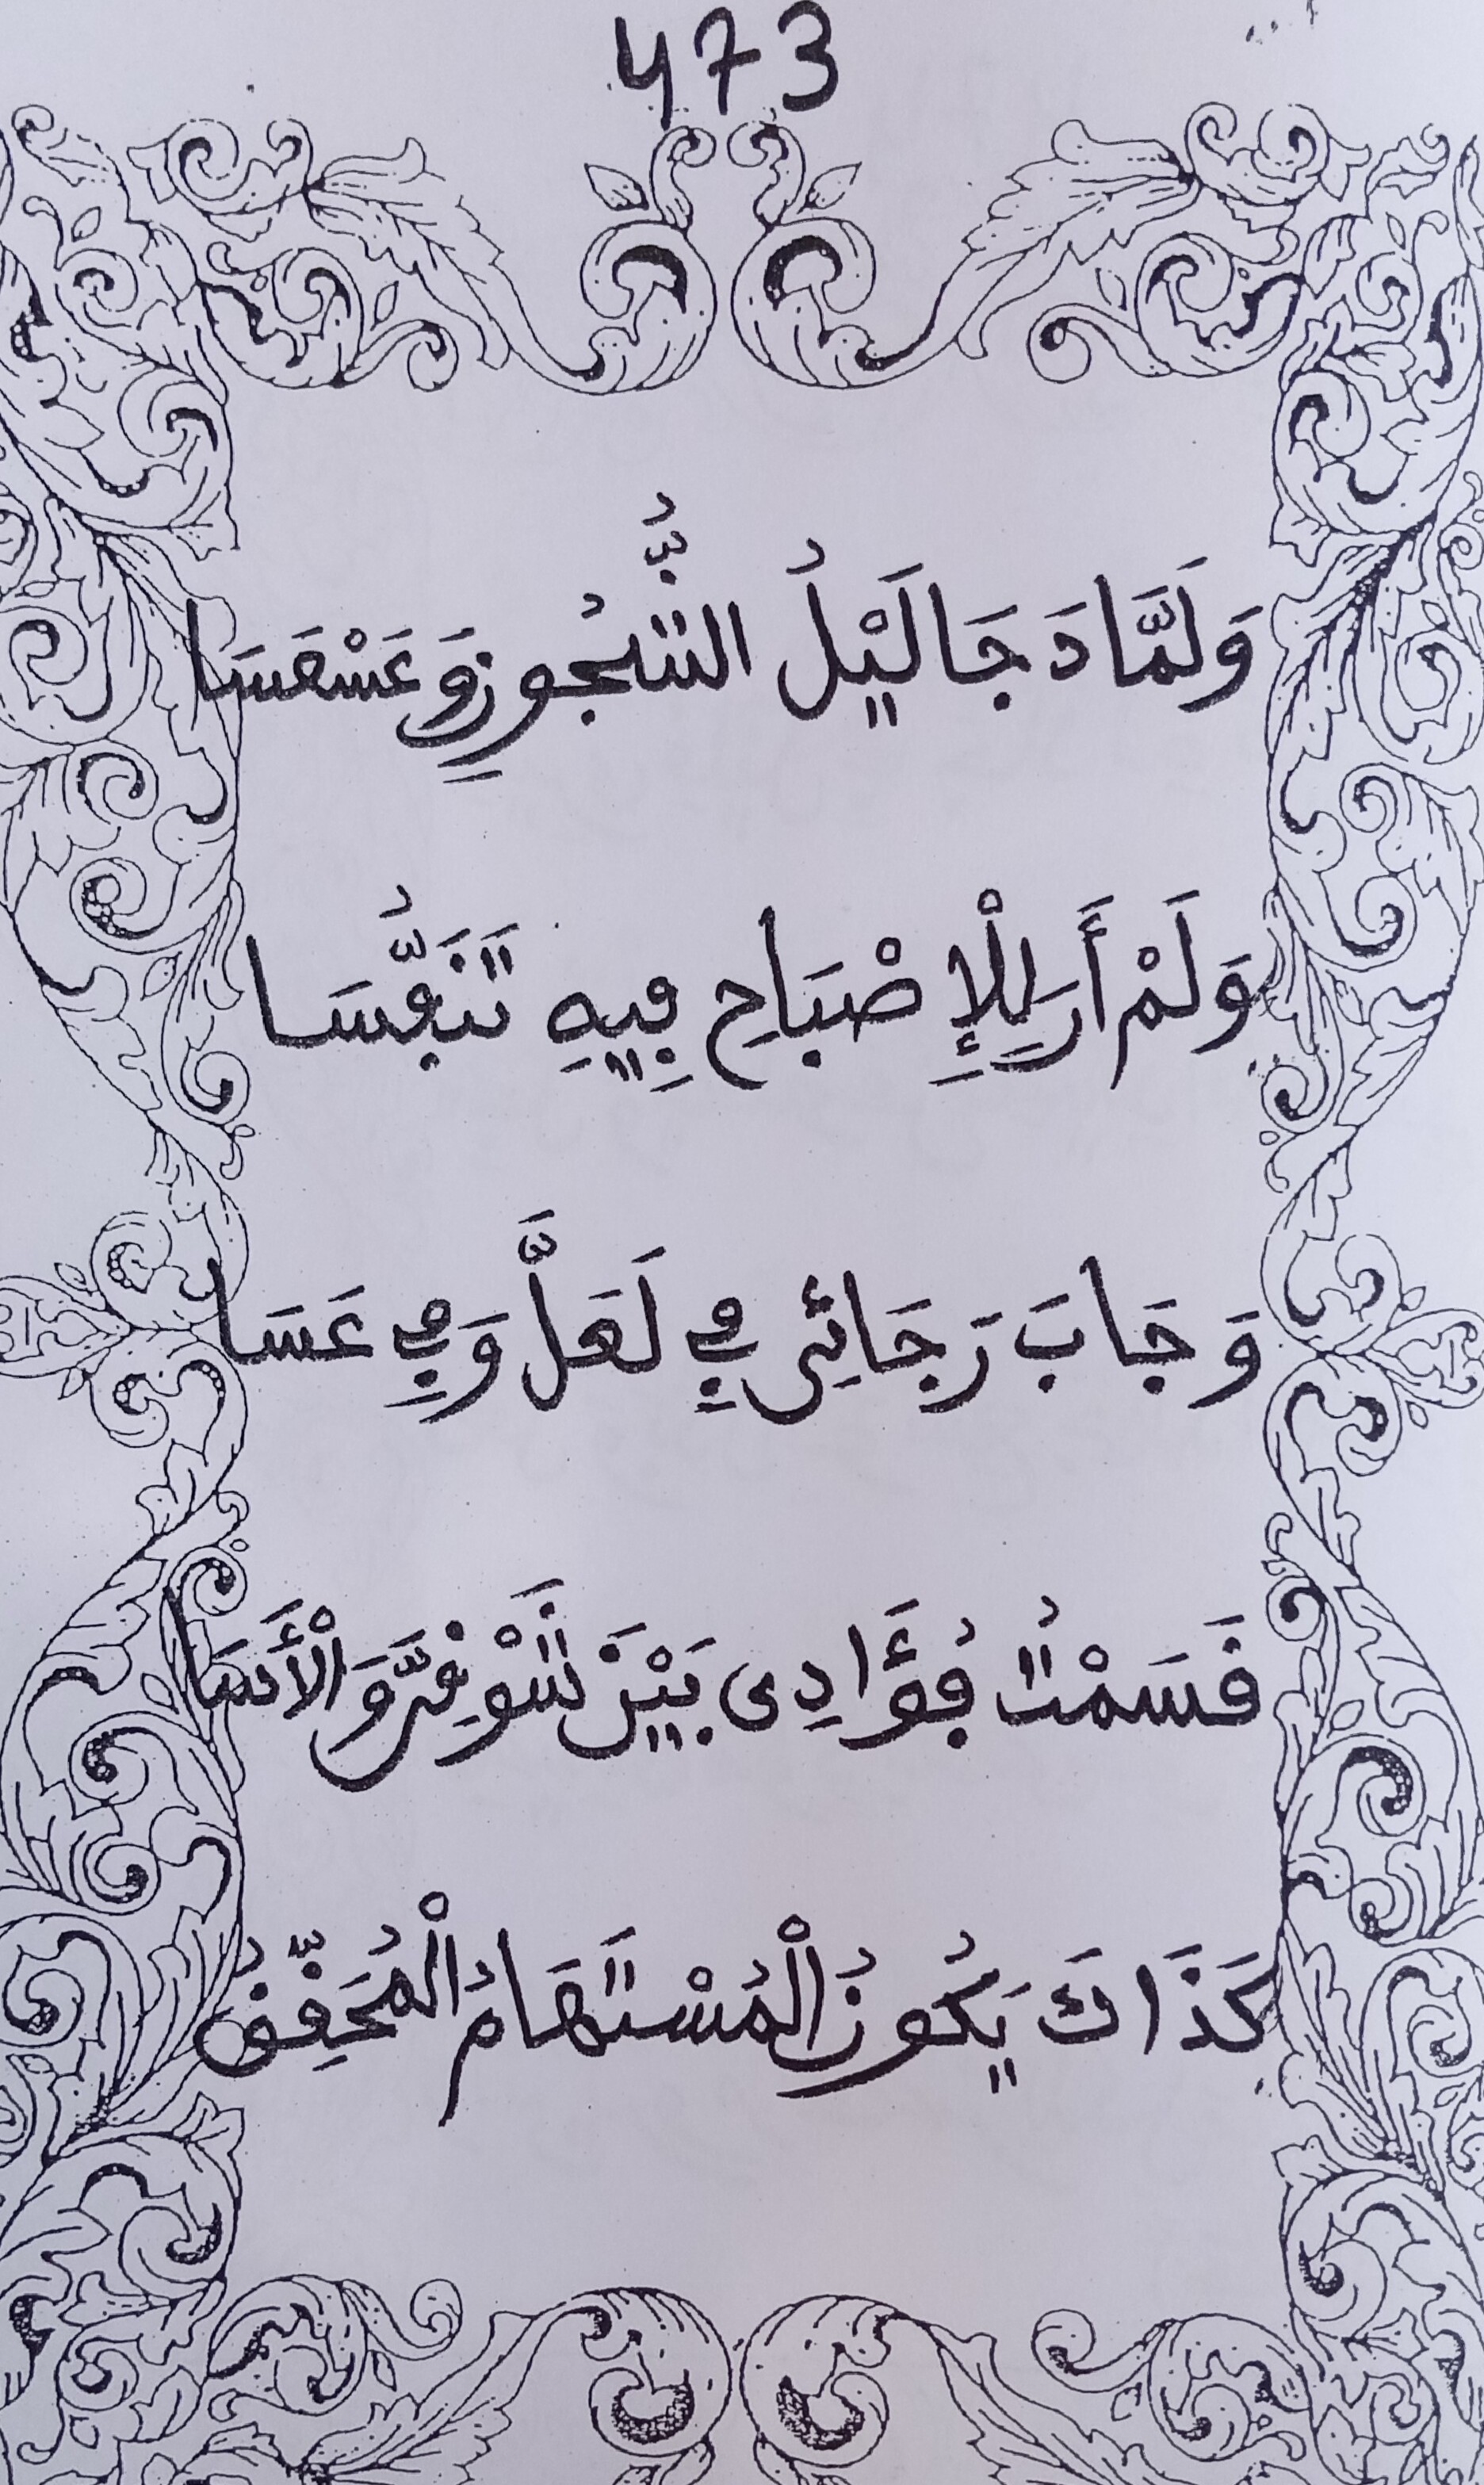 473
وَلَمَّا دَجَا لَيْلُ الشُّجُونِ وَعَسْعَسَا
وَلَمْ أَرَ لِلْإِصْبَاحِ فِيهِ تَنَفُّسَا
وَخَابَ رَجَائِي فِي لَعَلَّ وَفِي عَسَا
قَسَمْتُ فُؤَادِي بَيْنَ شَوْقٍ وَالْأَسَا
كَذَاكَ يَكُونُ الْمُسْتَهَامُ الْمُحَقِّقُ